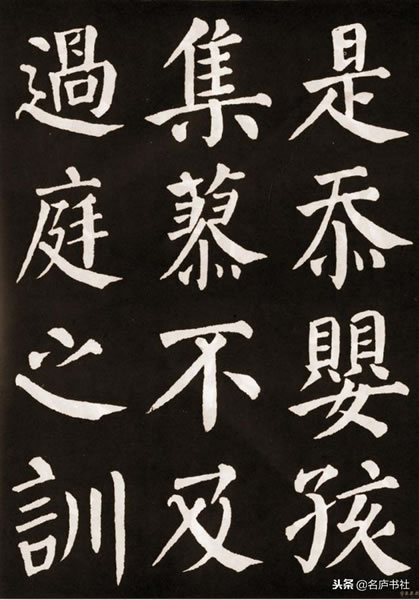 是忝嬰孩
集蓼不及
過庭之訓
头条 @名庐书社